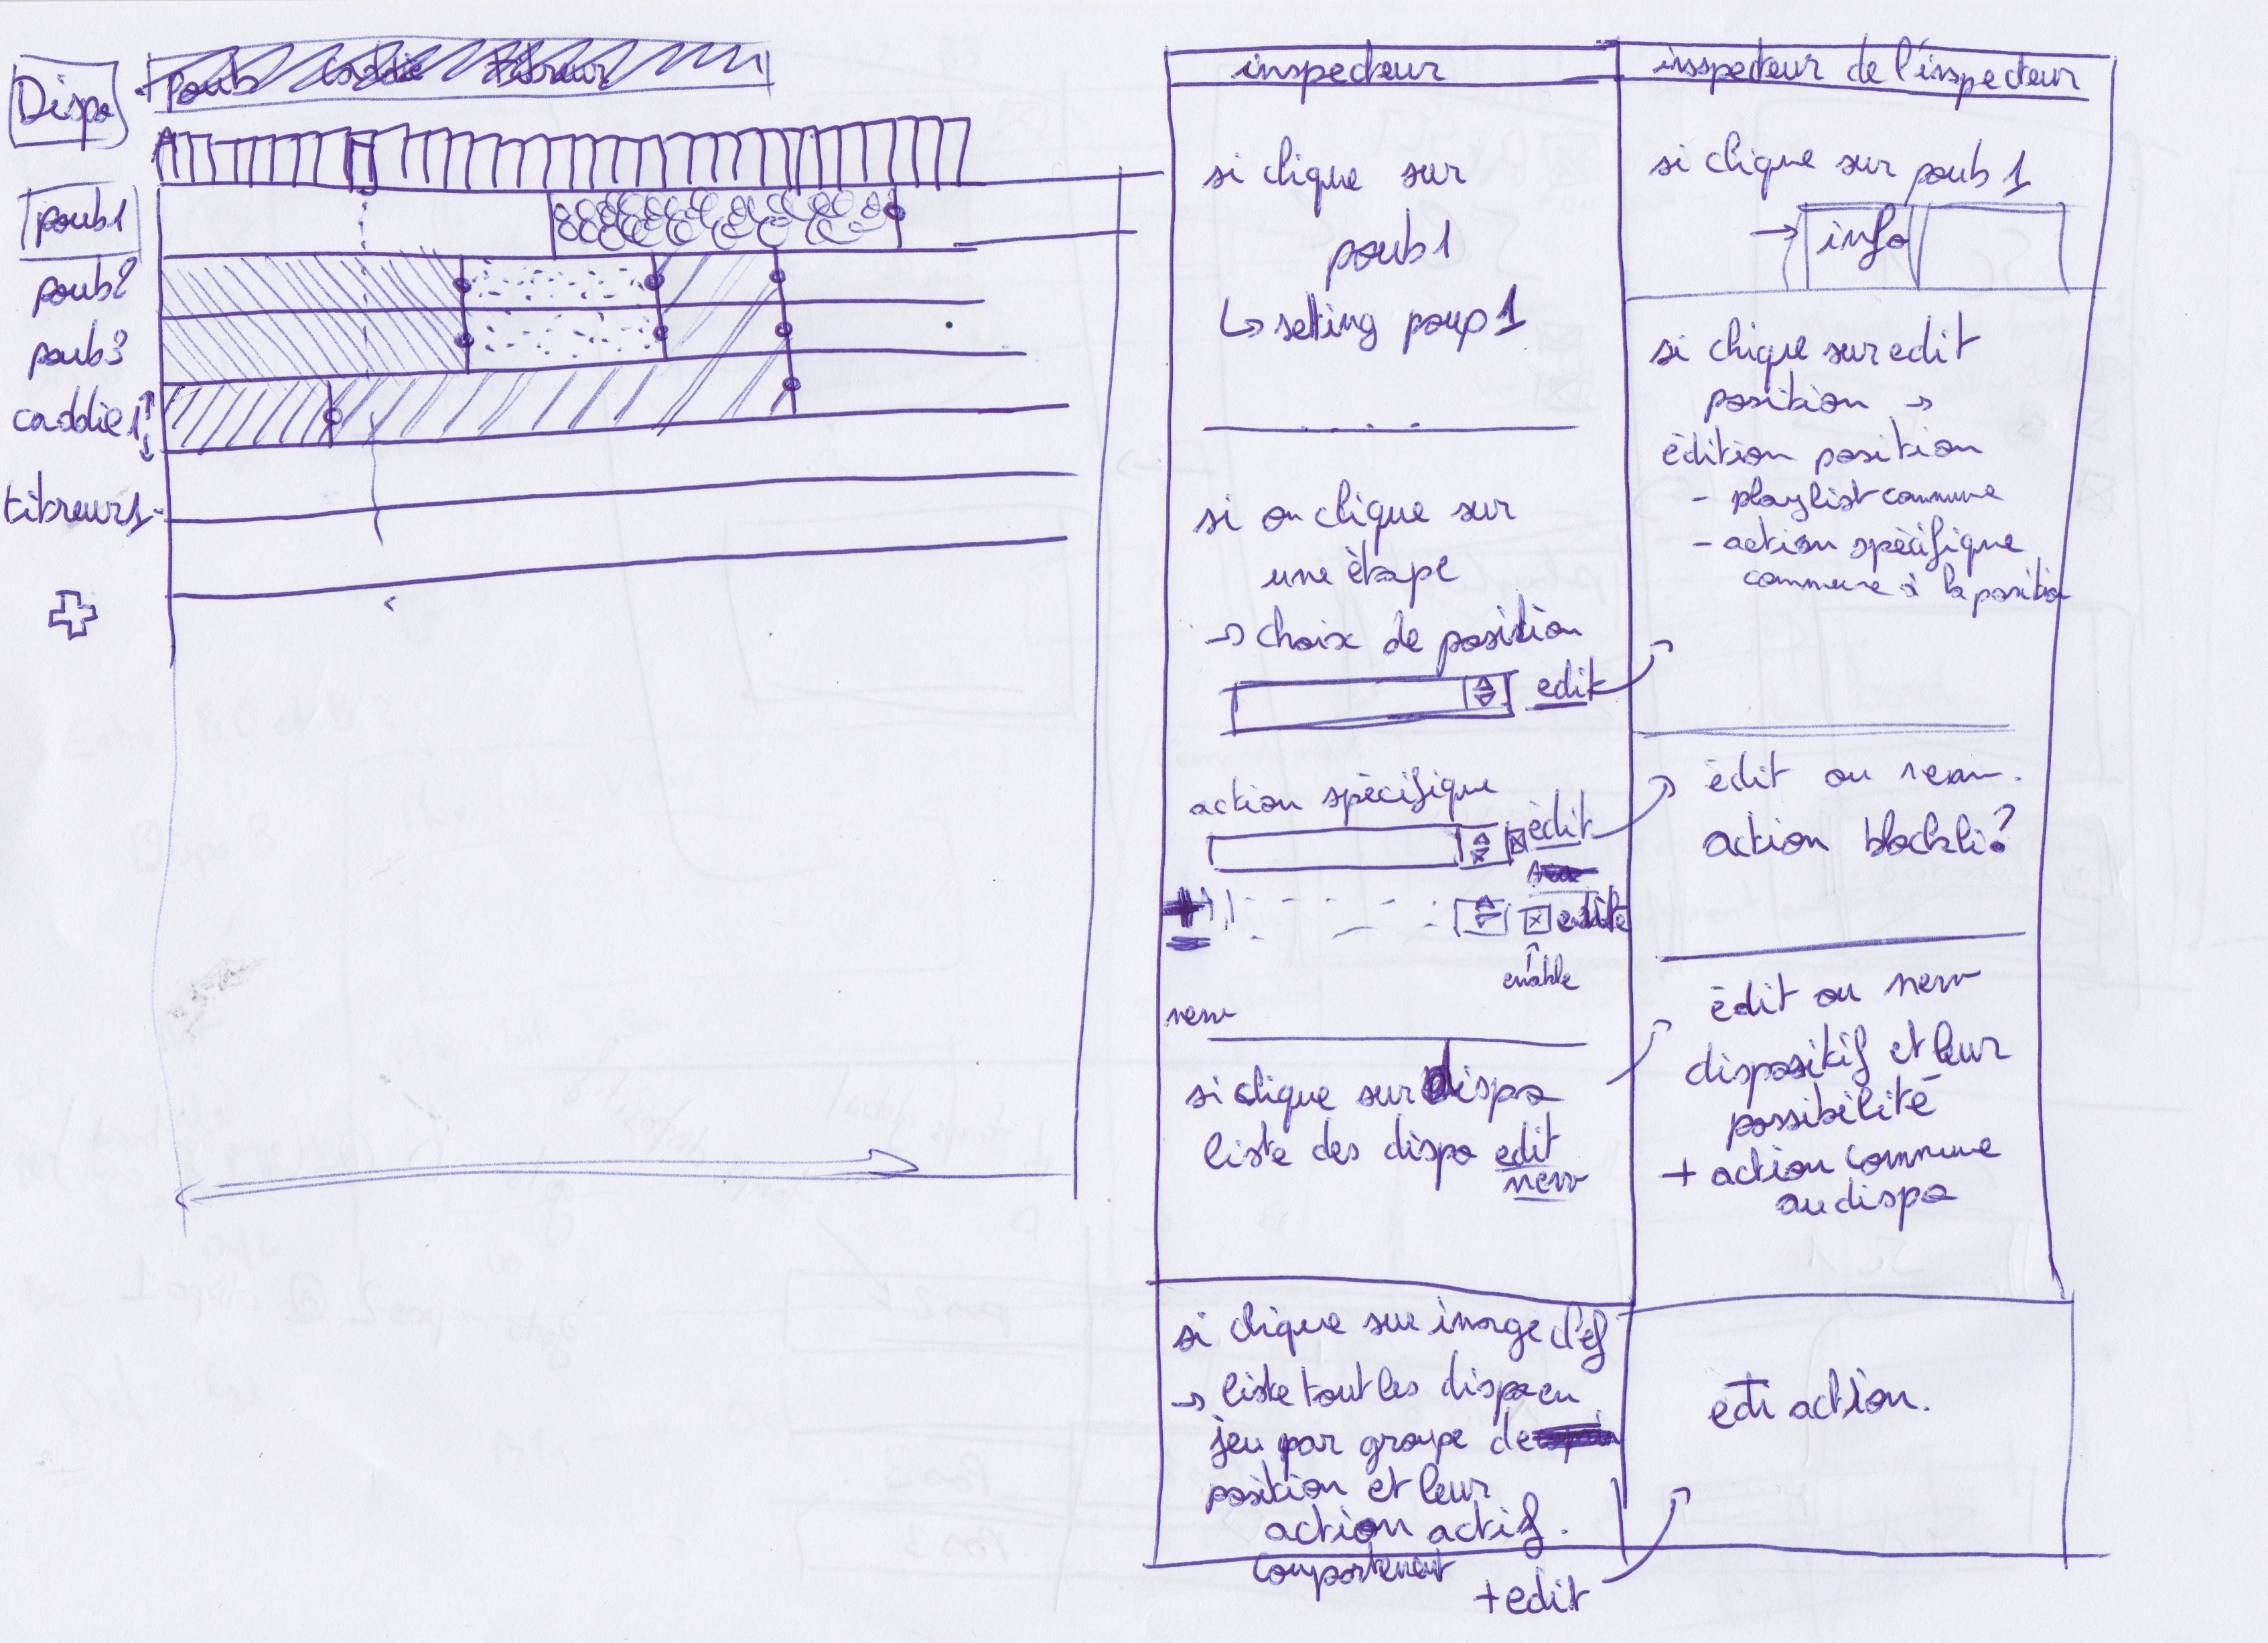 Dispo
Poub Caddie titreur
poub1
poub2
poub3
caddie1
titreur1
inspecteur
si clique sur
poub1
↳ setting poup1
si on clique sur
une étape
→ choix de position
edit
action spécifique
edit
+
edite
enable
new
si clique sur dispo
liste des dispo edit
new
si clique sur image clef
→ liste tout les dispo en
jeu par groupe de
position et leur
action actif.
comportement
+ edit
insspecteur de l'inspecteur
si clique sur poub1
→ info
si clique sur edit
position →
édition position
- playlist commune
- action spécifique
commune à la position
édit ou new.
action blockli?
édit ou new
dispositif et leur
possibilité
+ action commune
au dispo
edi action.